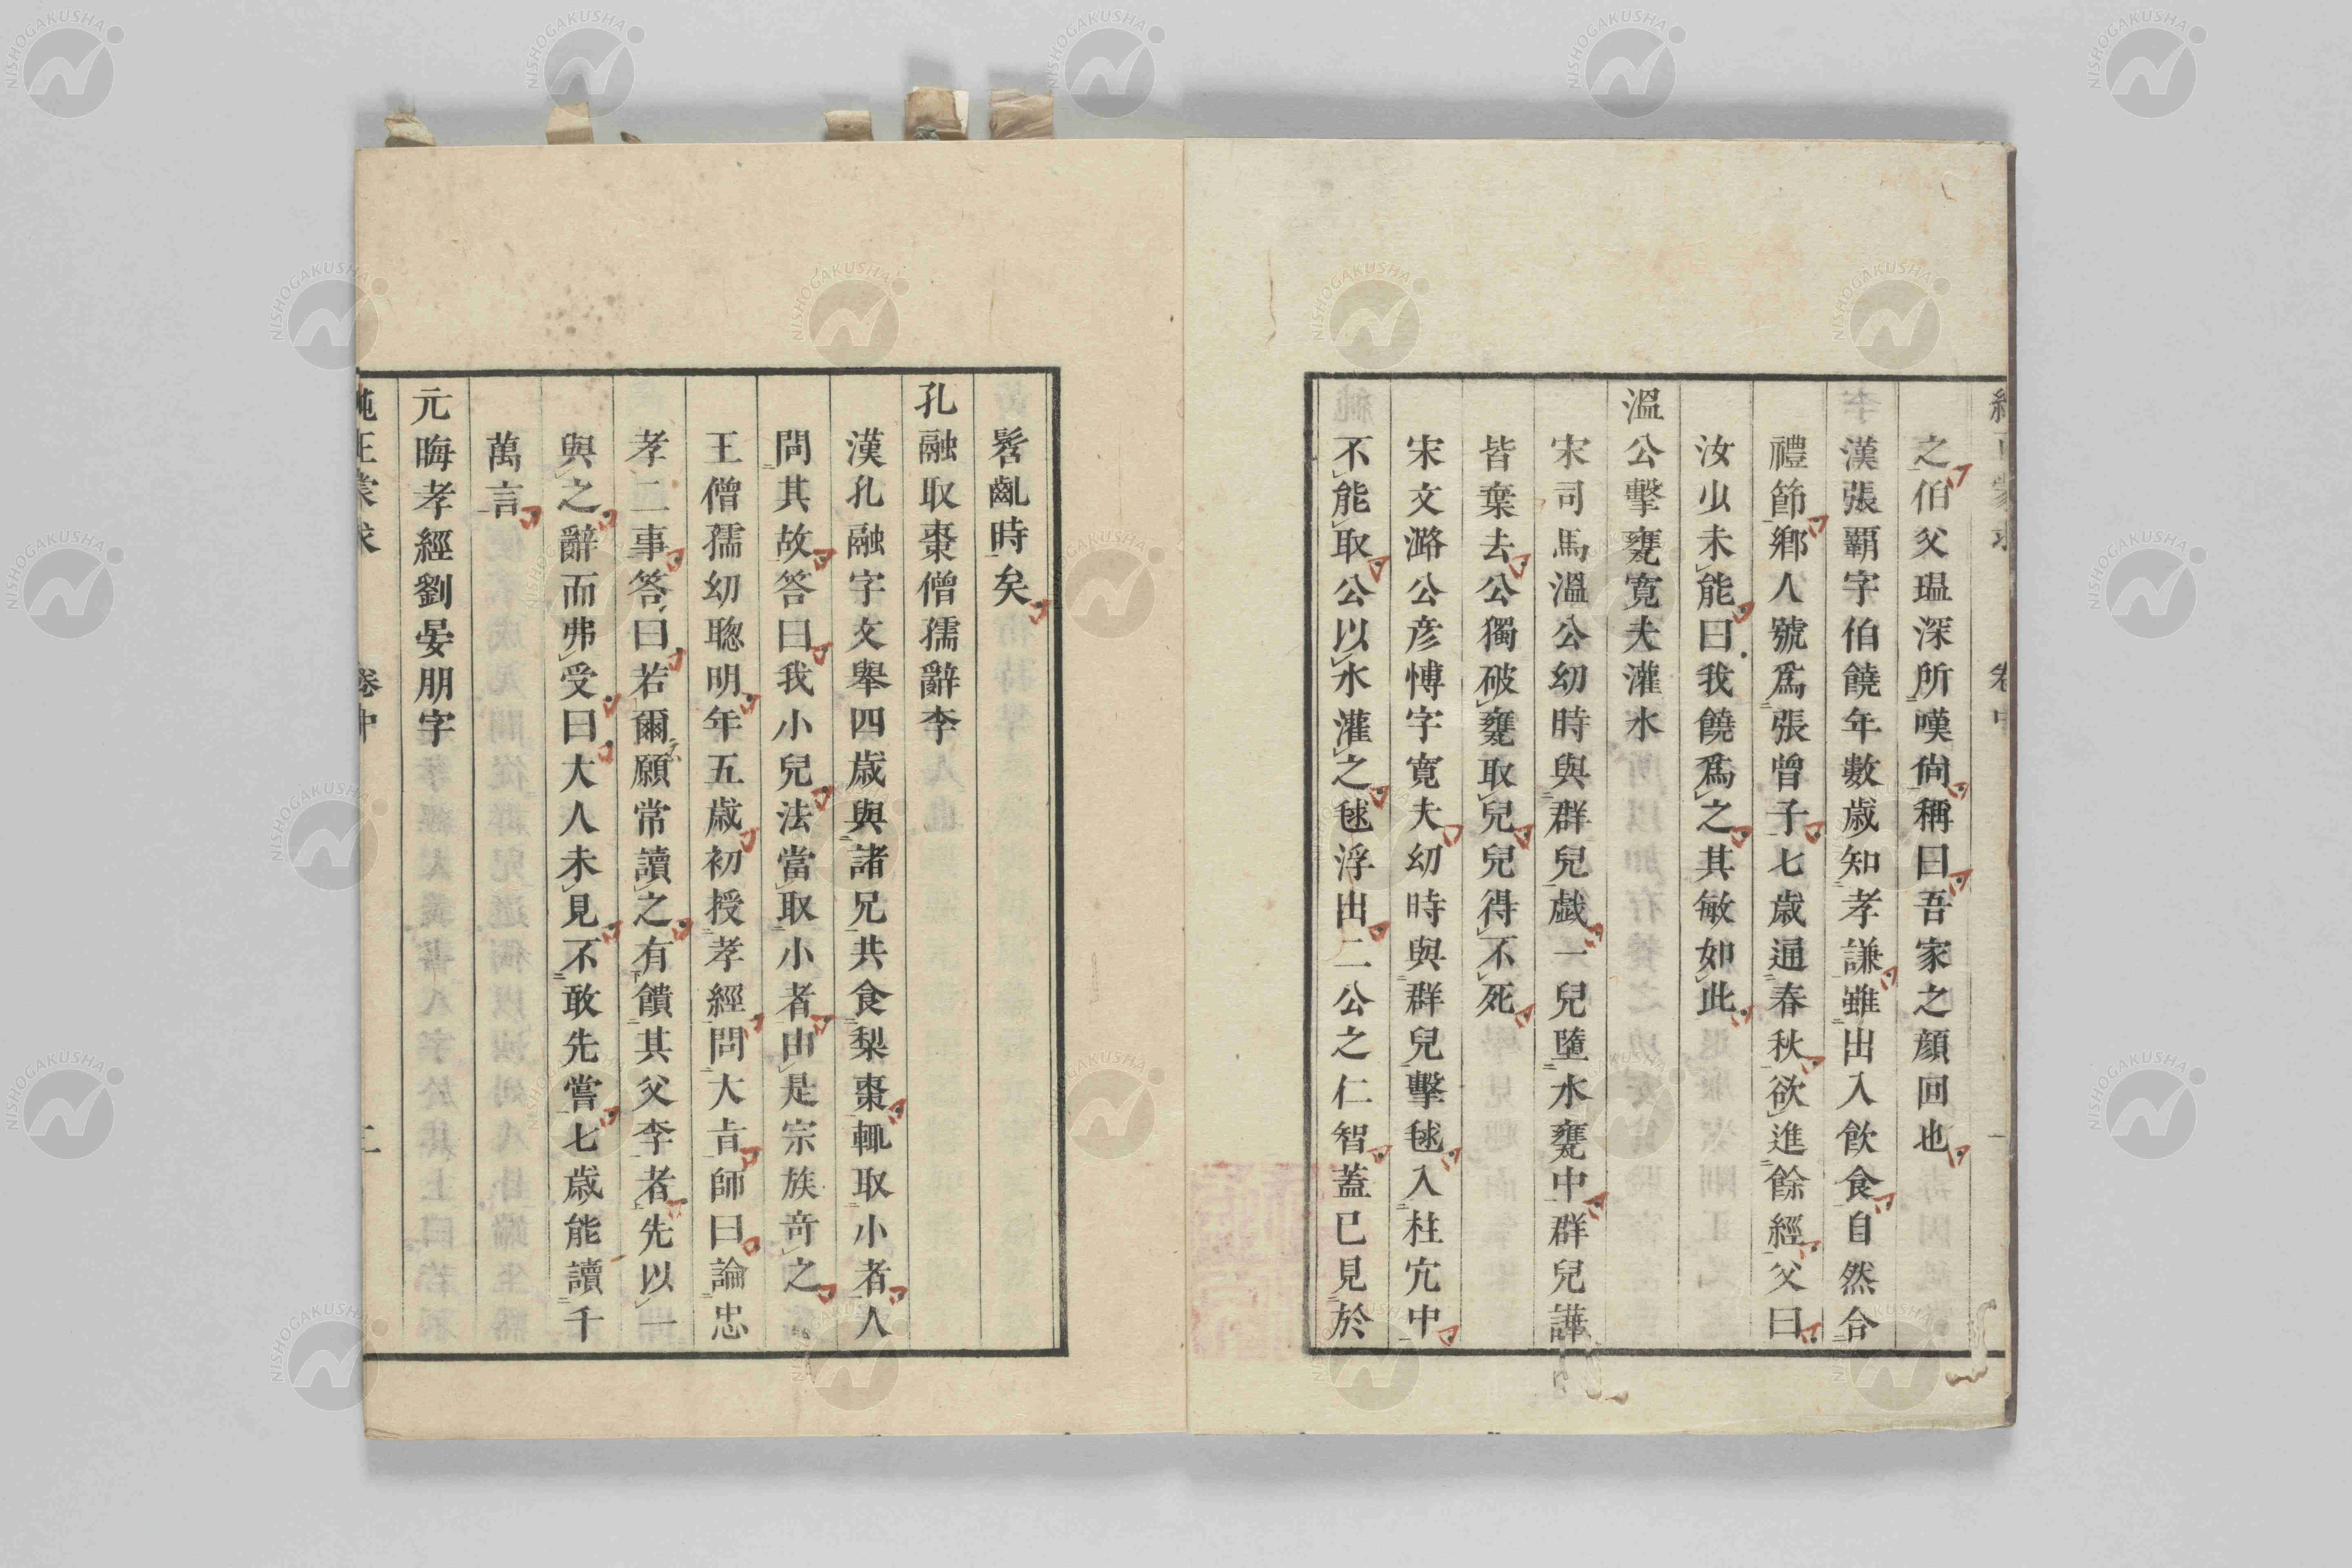 之伯父瑥深所嘆尙稱曰吾家之顏回也
漢張覇字伯饒年數歲知孝謙雖出入飮食自然合
禮節鄕人號爲張曾子七歲通春秋欲進餘經父曰
汝少未能曰我饒爲之其敏如此
溫公擊甕寛夫灌水
宋司馬溫公幼時與群兒戲一兒墮水甕中群兒譁
皆棄去公獨破甕取兒兒得不死
宋文潞公彥愽字寛夫幼時與群兒擊毬入柱穴中
不能取公以水灌之毬浮出二公之仁智蓋已見於
髫齓時矣
孔融取棗僧孺辭李
漢孔融字文舉四歲與諸兄共食梨棗輒取小者人
問其故答曰我小兒法當取小者由是宗族奇之
王僧孺幼聰明年五歲初授孝經問大旨師曰論忠
孝二事答曰若爾願常讀之有饋其父李者先以一
與之辭而弗受曰大人未見不敢先嘗七歲能讀千
萬言
元晦孝經劉晏朋字
卷中
NISHOGAKUSHA